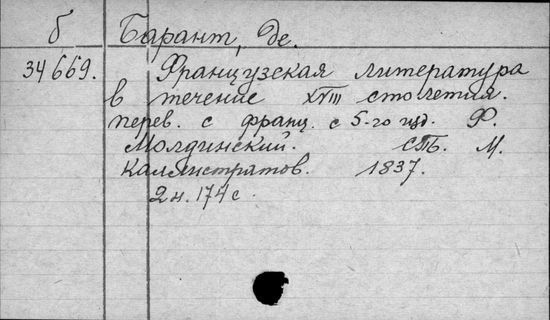 б Барант, де.
34669. Французская литература
в течение XVIII столетия.
перев. с франц. с 5-го изд. Ф.
Молдинский. СПБ. М.
Каллистратов. 1837.
2 н. 174 с.